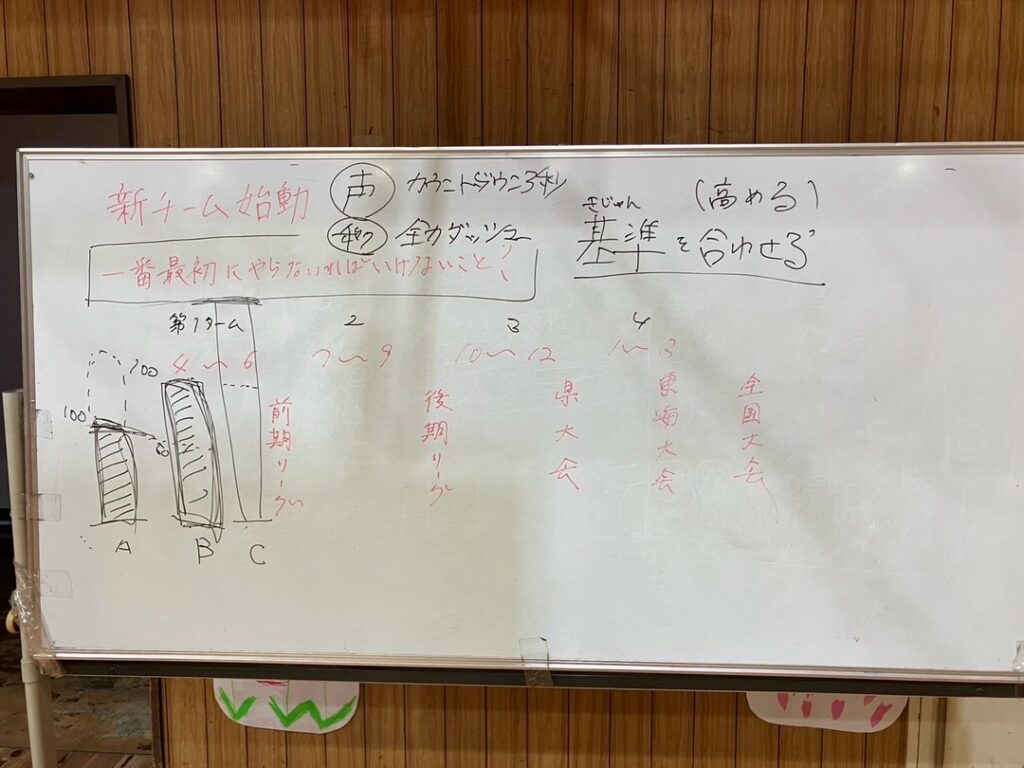 新チーム始動
声 カウントダウン3秒
全力ダッシュ
きじゅん (高める)
基準を合わせる
一番最初にやらなければいけないこと
第1ターム 2 3 4
4〜6 7〜9 10〜12 1〜3
前期リーグ
後期リーグ
県大会
東海大会
全国大会
100
100
A B C